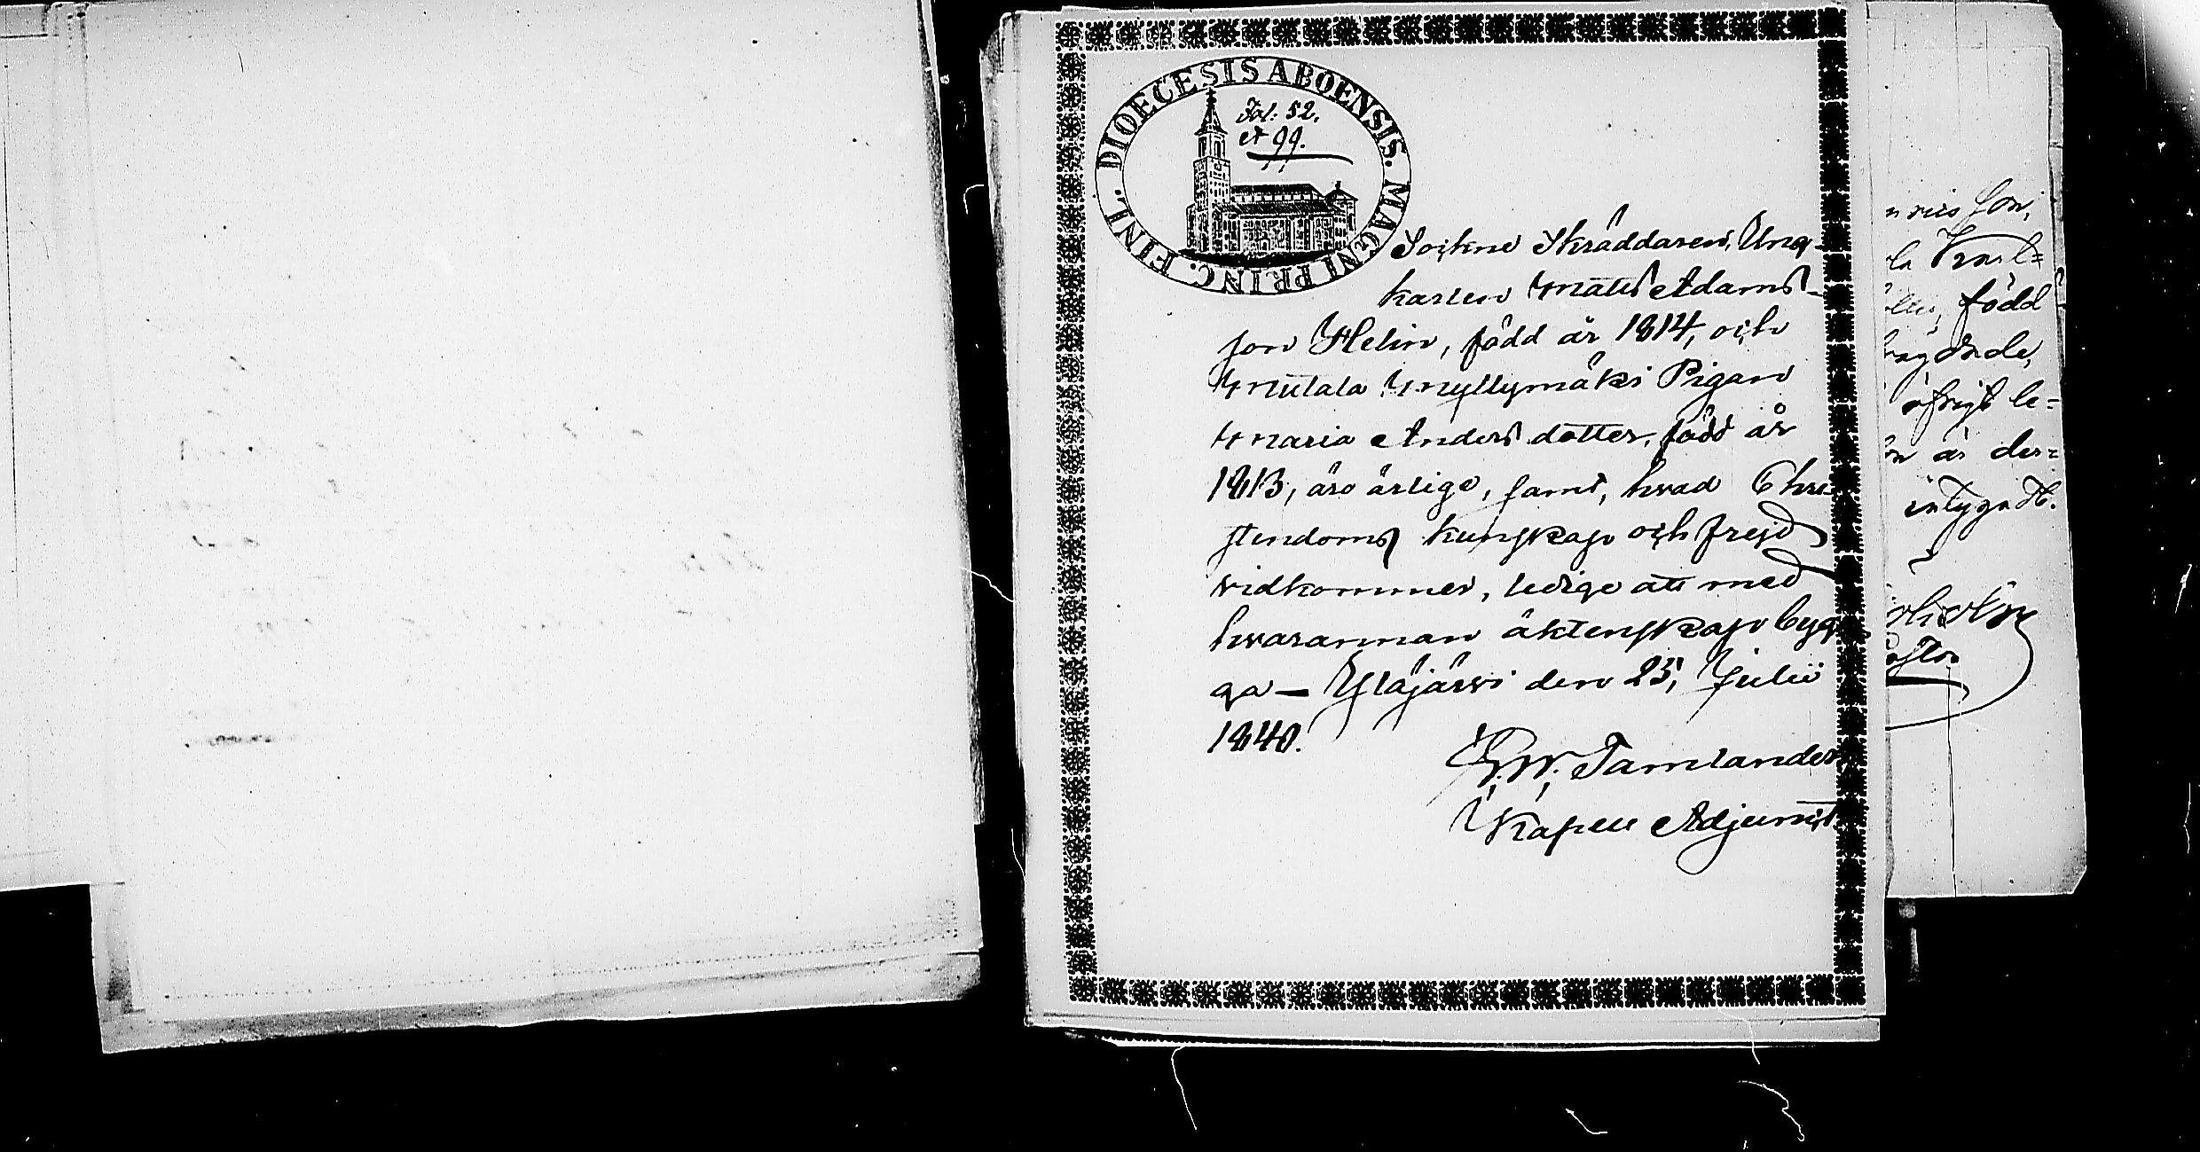 DIOECESIS ABOENSIS. MAGNI PRINC. FINL.
Fol. 52.
et 99.
Sockne Skräddaren, Ung-
karlen Matts Adams-
son Helin, född år 1814, och
Mutala Myllymäki Pigan
Maria Anders dotter, född år
1813, äro ärlige, samt, hvad Chri-
stendoms kunskap och frejd
vidkommer, ledige att med
hvarannan äktenskap byg-
ga — Ylöjärvi den 25, Julii
1840.
G. W. Tamlander
Kapell Adjunct.
son,
född
öfrigt le=
är der=
intygadt.
Pastor